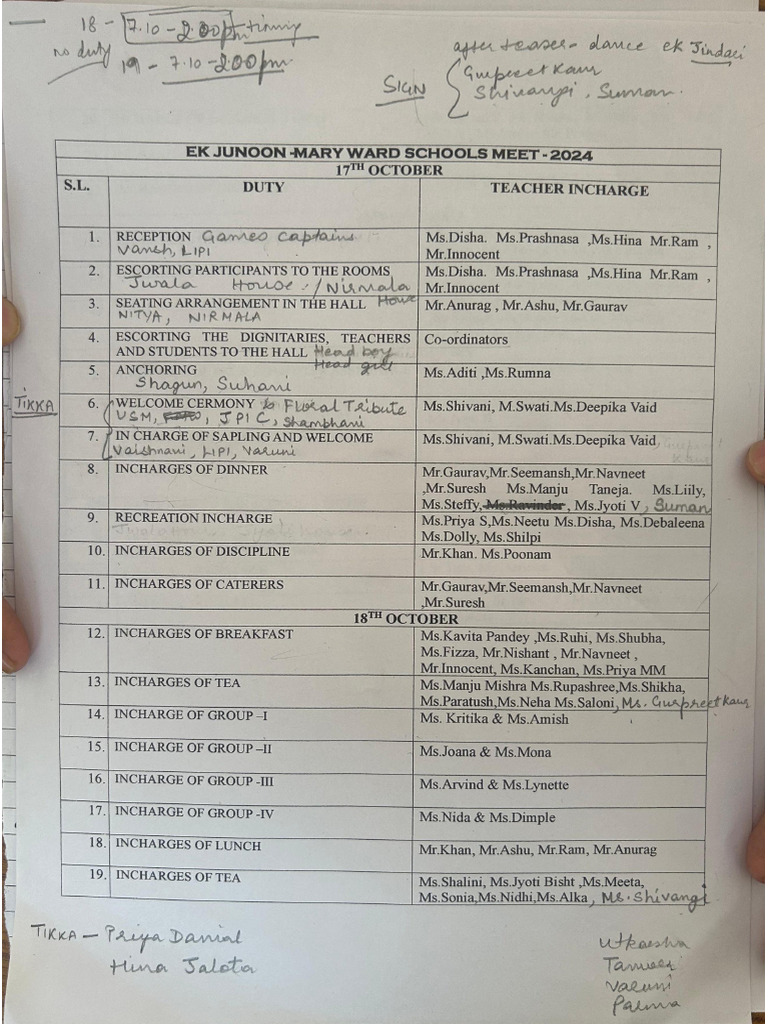 18 - 7.10 - 2.00pm timing
no duty
19 - 7.10 - 2.00pm.
after teaser - dance ek Jindari
SIGN
Gurpreet Kaur
Shivangi, Suman.
EK JUNOON -MARY WARD SCHOOLS MEET - 2024
17TH OCTOBER
S.L. DUTY TEACHER INCHARGE
1. RECEPTION Games Captains
Vansh, LIPI
Ms.Disha. Ms.Prashnasa ,Ms.Hina Mr.Ram ,
Mr.Innocent
2. ESCORTING PARTICIPANTS TO THE ROOMS
Jwala House / Nirmala
House
Ms.Disha. Ms.Prashnasa ,Ms.Hina Mr.Ram ,
Mr.Innocent
3. SEATING ARRANGEMENT IN THE HALL
NITYA, NIRMALA
Mr.Anurag , Mr.Ashu, Mr.Gaurav
4. ESCORTING THE DIGNITARIES, TEACHERS
AND STUDENTS TO THE HALL Head boy
Head girl
Co-ordinators
5. ANCHORING
Shagun, Suhani
Ms.Aditi ,Ms.Rumna
TIKKA
6. WELCOME CERMONY & Floral Tribute
USM, JPIC, Shambhani
Ms.Shivani, M.Swati.Ms.Deepika Vaid
7. IN CHARGE OF SAPLING AND WELCOME
Vaishnavi, LIPI, Varuni
Ms.Shivani, M.Swati.Ms.Deepika Vaid
8. INCHARGES OF DINNER
Mr.Gaurav,Mr.Seemansh,Mr.Navneet
,Mr.Suresh Ms.Manju Taneja. Ms.Liily,
Ms.Steffy, Ms.Ravinder , Ms.Jyoti V , Suman
9. RECREATION INCHARGE
Ms.Priya S,Ms.Neetu Ms.Disha, Ms.Debaleena
Ms.Dolly, Ms.Shilpi
10. INCHARGES OF DISCIPLINE Mr.Khan. Ms.Poonam
11. INCHARGES OF CATERERS Mr.Gaurav,Mr.Seemansh,Mr.Navneet
,Mr.Suresh
18TH OCTOBER
12. INCHARGES OF BREAKFAST Ms.Kavita Pandey ,Ms.Ruhi, Ms.Shubha,
Ms.Fizza, Mr.Nishant , Mr.Navneet ,
Mr.Innocent, Ms.Kanchan, Ms.Priya MM
13. INCHARGES OF TEA Ms.Manju Mishra Ms.Rupashree,Ms.Shikha,
Ms.Paratush,Ms.Neha Ms.Saloni, Ms. Gurpreet Kaur
14. INCHARGE OF GROUP –I Ms. Kritika & Ms.Amish
15. INCHARGE OF GROUP –II Ms.Joana & Ms.Mona
16. INCHARGE OF GROUP -III Ms.Arvind & Ms.Lynette
17. INCHARGE OF GROUP -IV Ms.Nida & Ms.Dimple
18. INCHARGES OF LUNCH Mr.Khan, Mr.Ashu, Mr.Ram, Mr.Anurag
19. INCHARGES OF TEA Ms.Shalini, Ms.Jyoti Bisht ,Ms.Meeta,
Ms.Sonia,Ms.Nidhi,Ms.Alka , Ms. Shivangi
TIKKA - Priya Danial
Hina Jalota
Utkarsha
Varuni